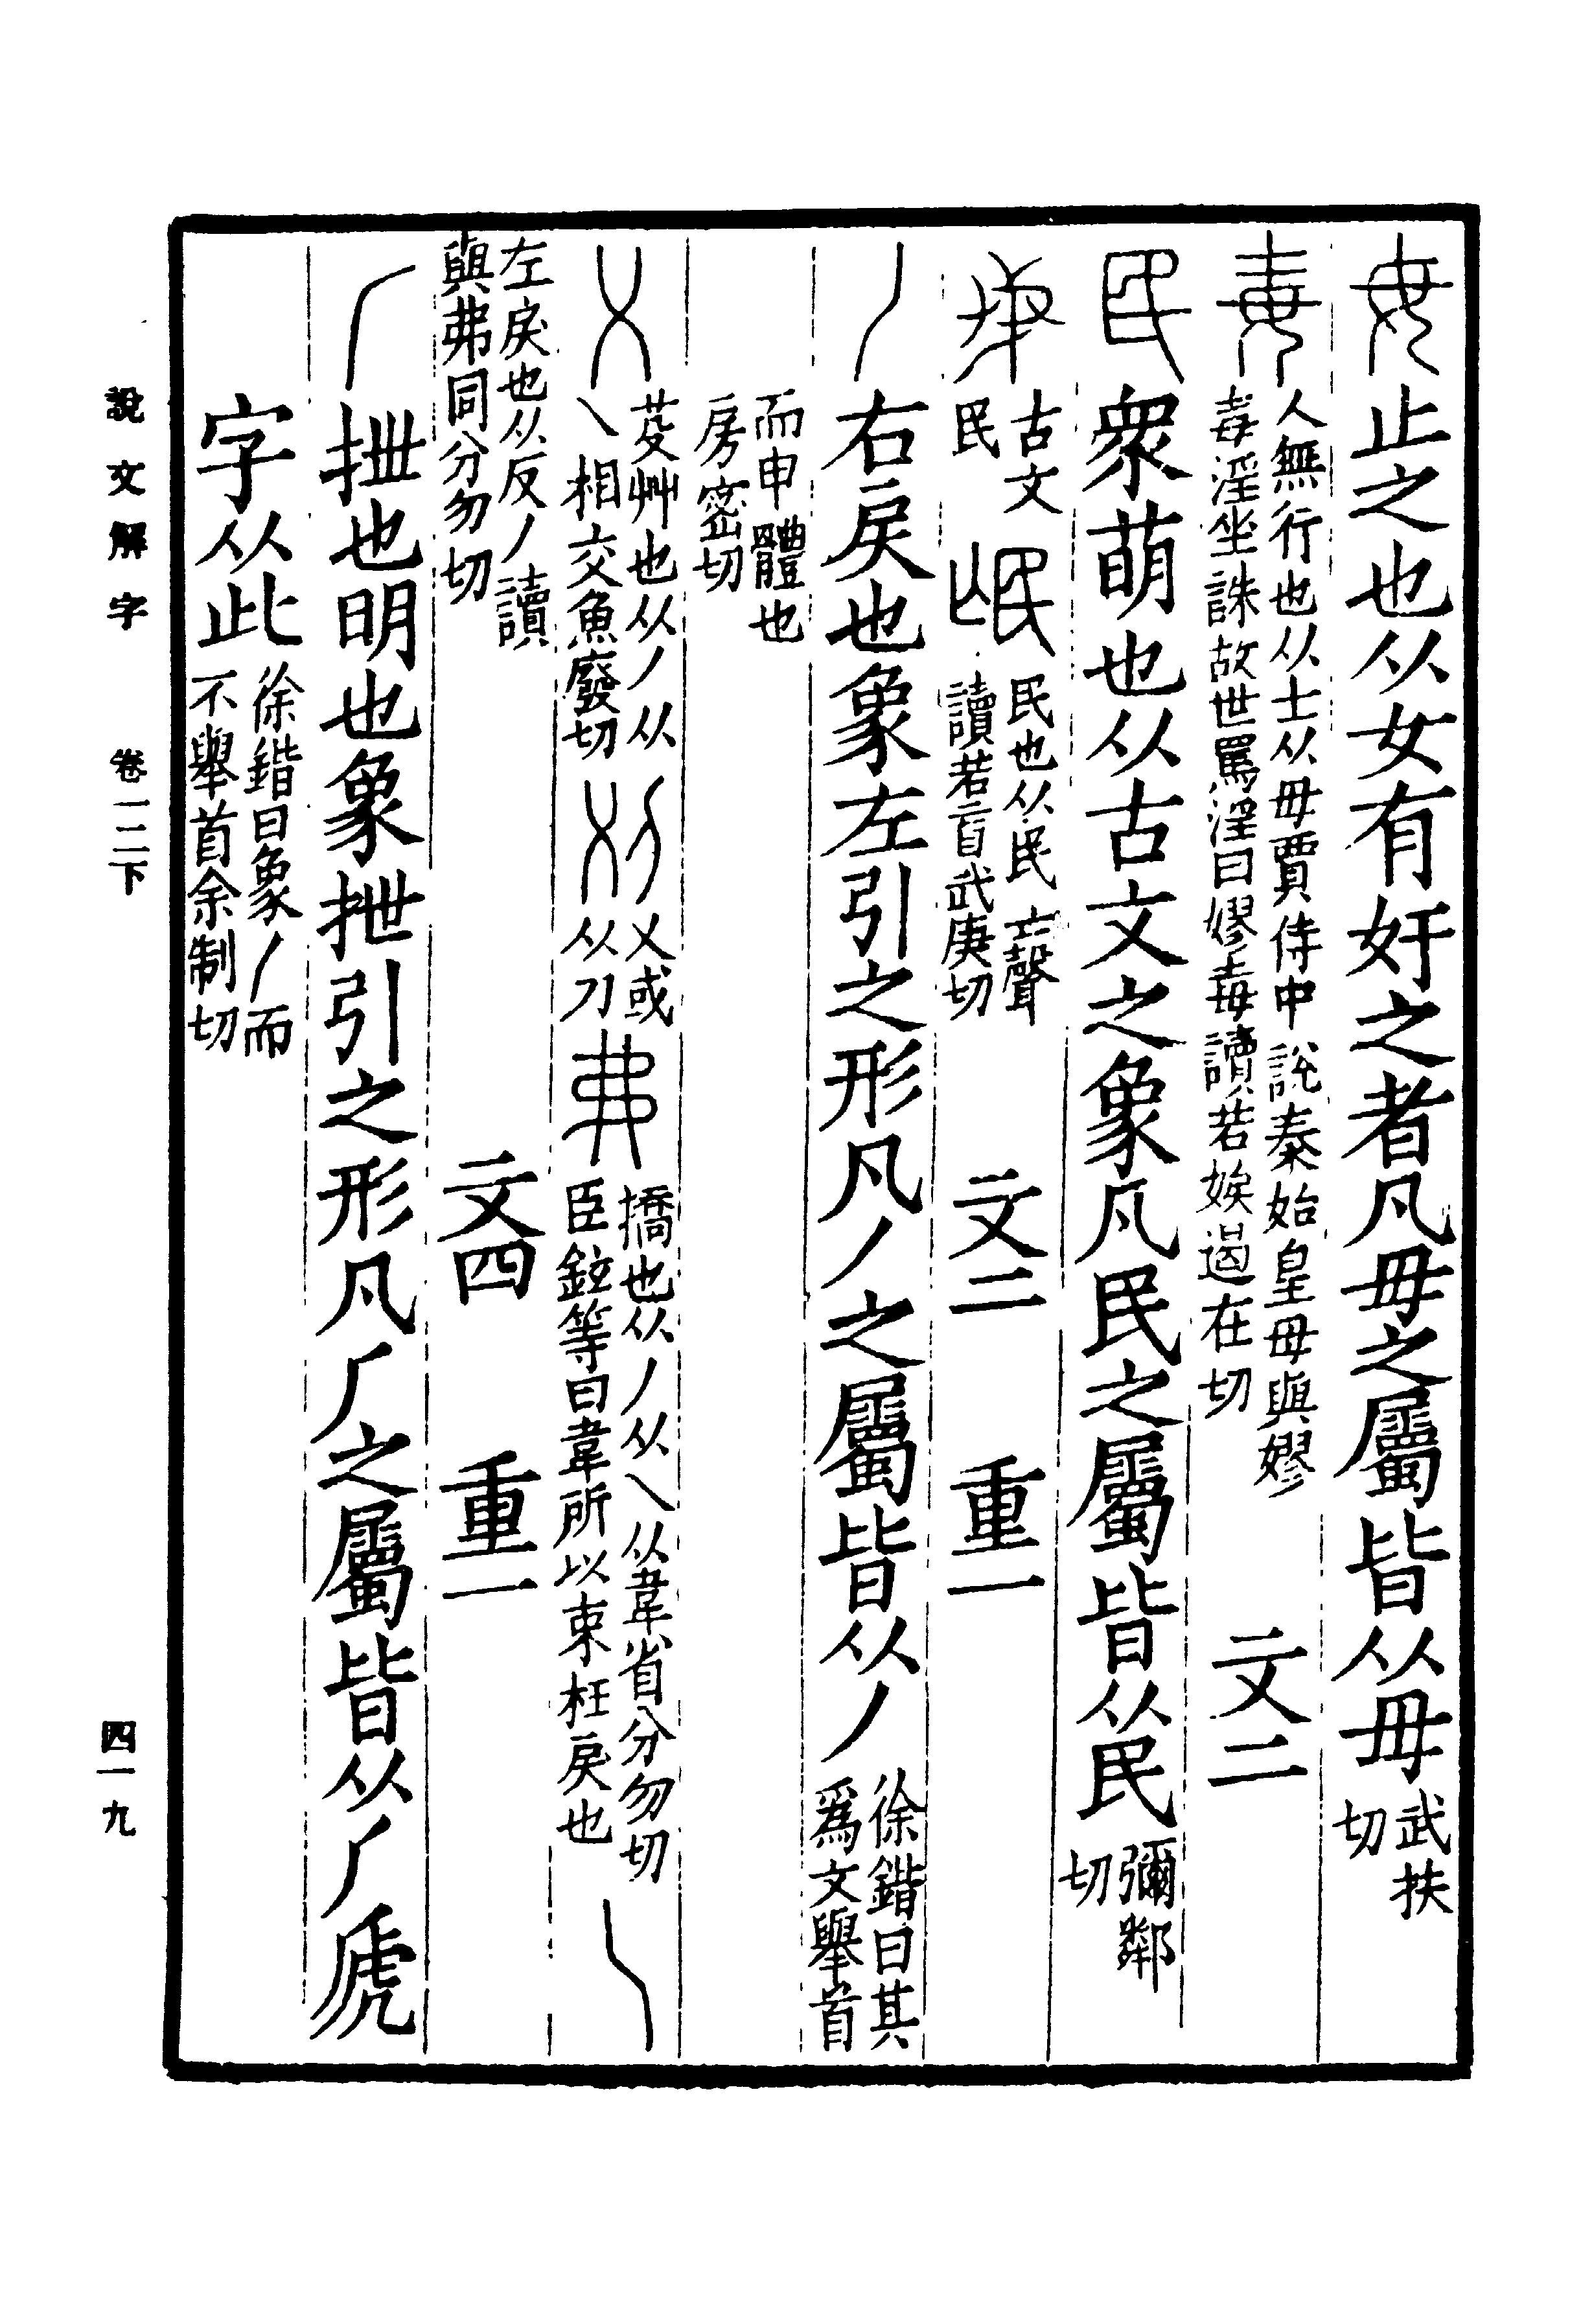 毋止之也从女有奸之者凡毋之屬皆从毋武扶切
毐人無行也从士从毋賈侍中說秦始皇母與嫪毐淫坐誅故世罵淫曰嫪毐讀若娭遏在切 文二
民衆萌也从古文之象凡民之屬皆从民彌鄰切
古文民 氓民也从民亡聲讀若盲武庚切 文二 重一
丿右戾也象左引之形凡丿之屬皆从丿徐鍇曰其爲文舉首
而申體也房密切
乂芟艸也从丿从乀相交魚廢切 刈乂或从刀 弗撟也从丿从乀从韋省分勿切臣鉉等曰韋所以束枉戾也 乀
左戾也从反丿讀與弗同分勿切 文四 重一
𠂆抴也明也象抴引之形凡𠂆之屬皆从𠂆虒
字从此徐鍇曰象丿而不舉首余制切
說文解字 卷一二下 四一九